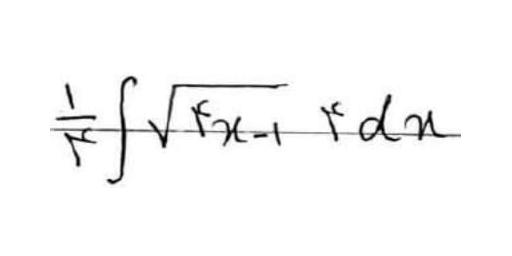 ۱/۴ ∫ √(۴x-۱) ۴dx